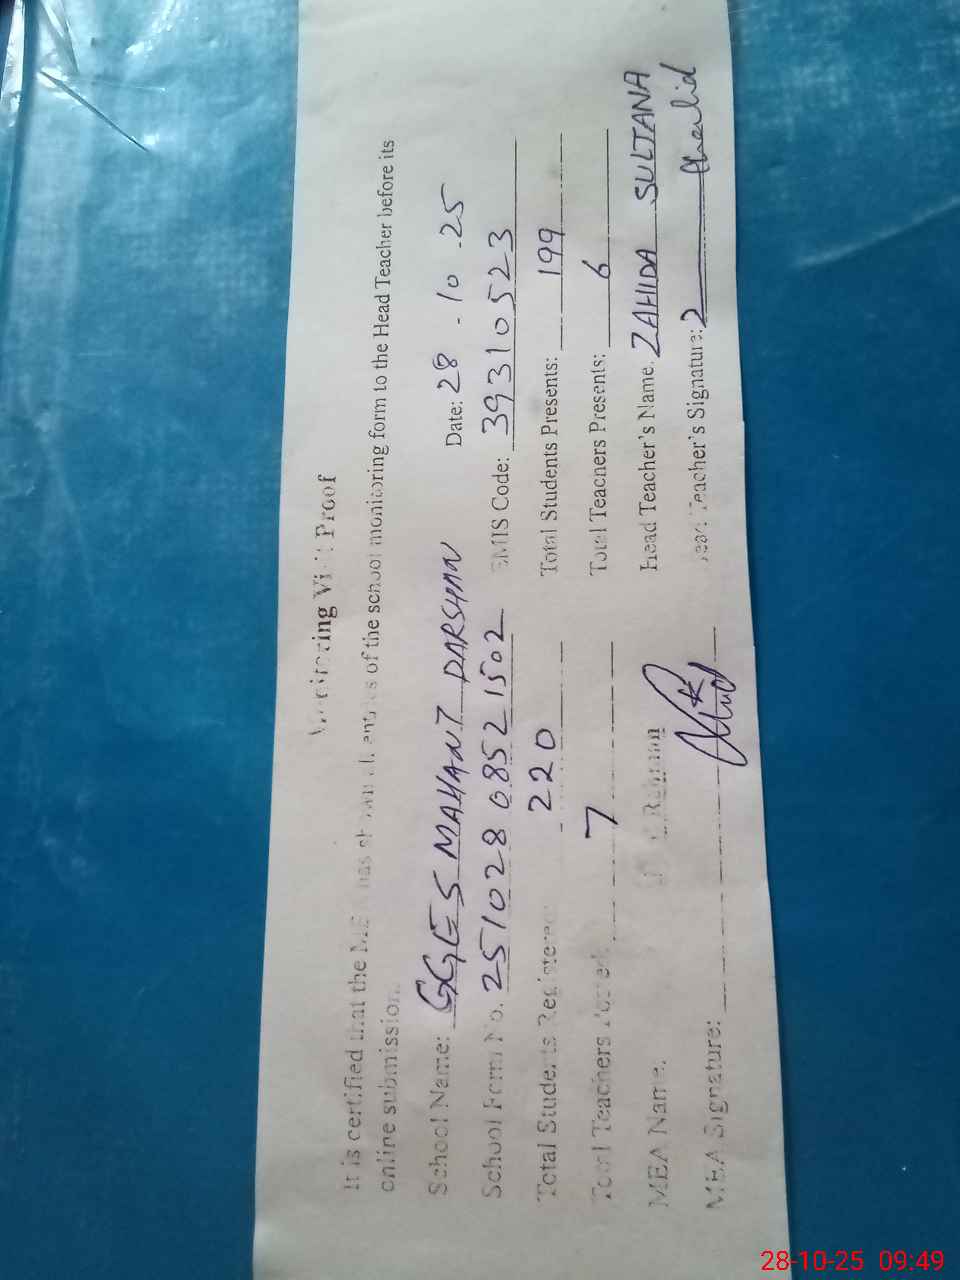 Monitoring Visit Proof
It is certified that the MEA has shown all entries of the school monitoring form to the Head Teacher before its
online submission.
School Name: GGES MAHANT DARSHAN Date: 28-10-25
School Form No. 251028 0852 1502 EMIS Code: 39310523
Total Students Registered: 220 Total Students Presents: 199
Total Teachers Posted: 7 Total Teachers Presents: 6
MEA Name: Rehman Head Teacher's Name. ZAHIDA SULTANA
MEA Signature: Head Teacher's Signature:
28-10-25 09:49